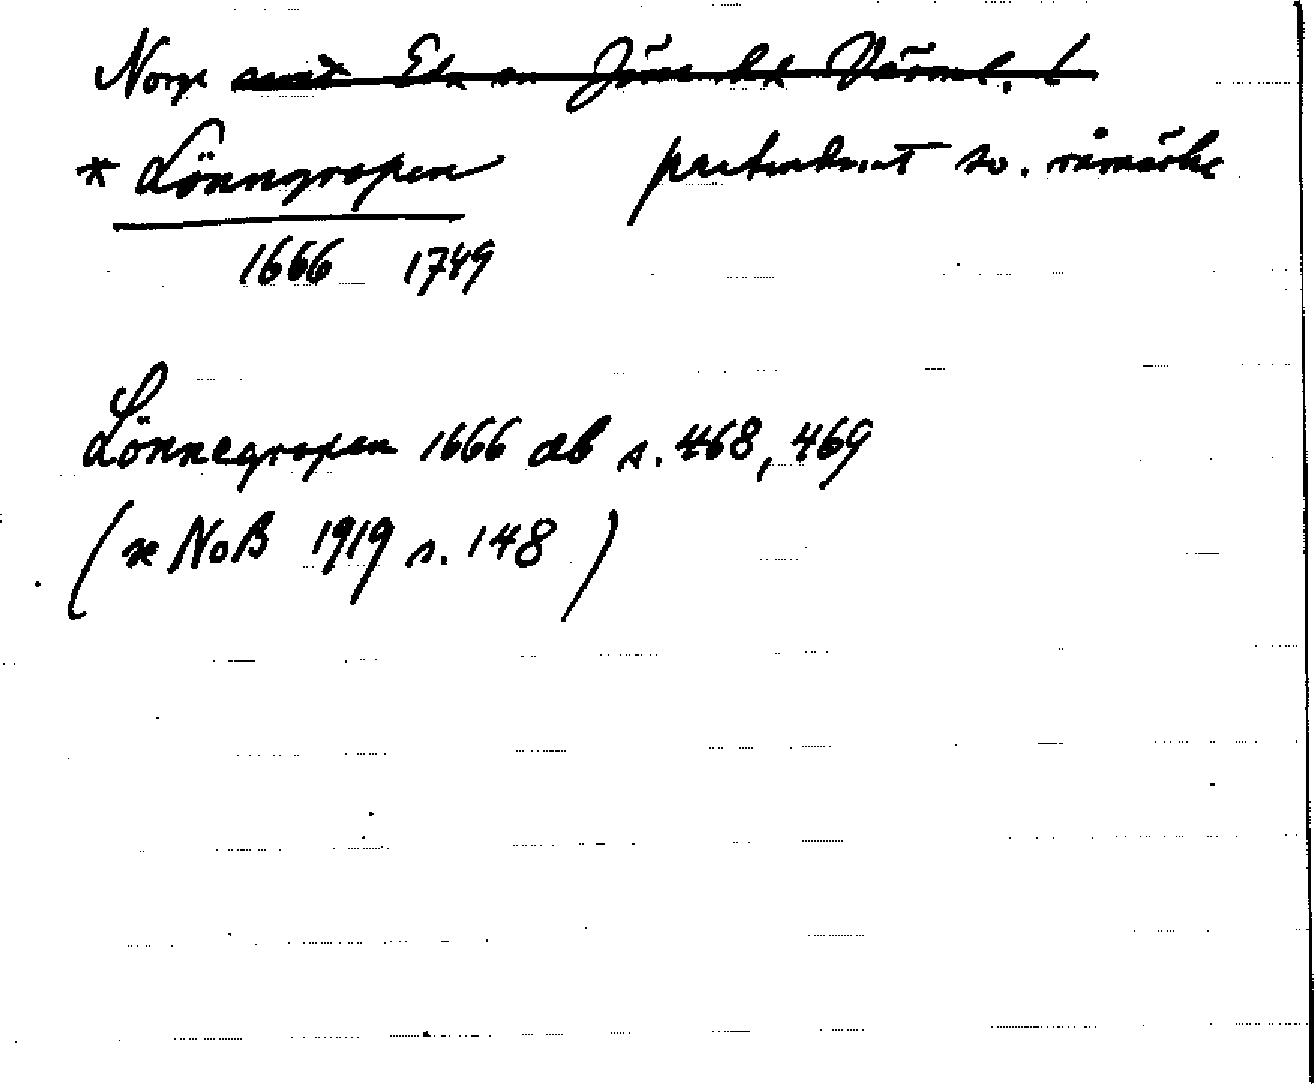 Norge samt Eda sn Jösse hd Värml. l
* Lönngropen sv. råmärke
1666 1749
Lönnegropen 1666 ab s. 468, 469
(x NoB 1919 s. 148 )